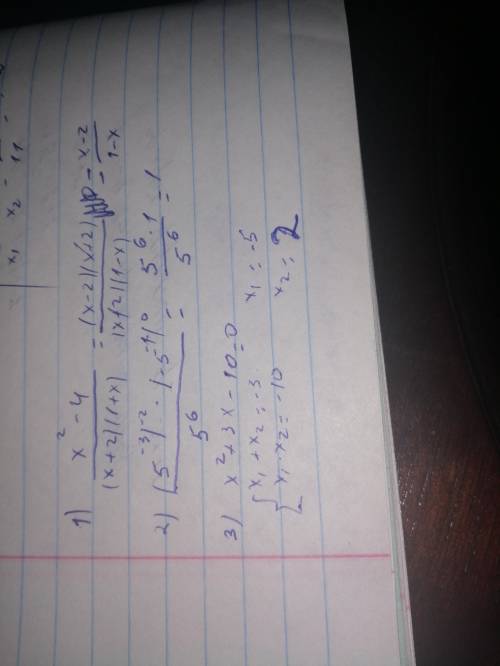 x₁ x₂ = 11
1) (x² - 4)/((x+2)(1+x)) = ((x-2)(x+2))/((x+2)(1-x)) = (x-2)/(1-x)
2) ((5⁻³)⁻² · (-5⁻¹)⁰)/5⁶ = (5⁶ · 1)/5⁶ = 1
3) x² + 3x - 10 = 0
{ x₁ + x₂ = -3 x₁ = -5
x₁ · x₂ = -10 x₂ = 2